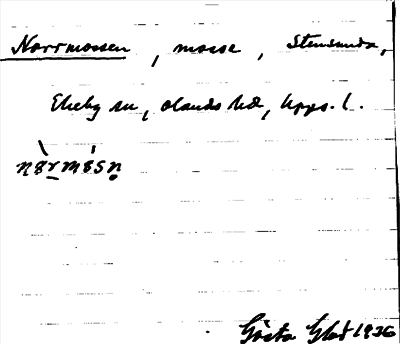 Norrmossen, mosse, Stensunda,
Ekeby sn, Olands hd, Upps. l.
nȣrmȣsn̥
Gösta Glad 1936